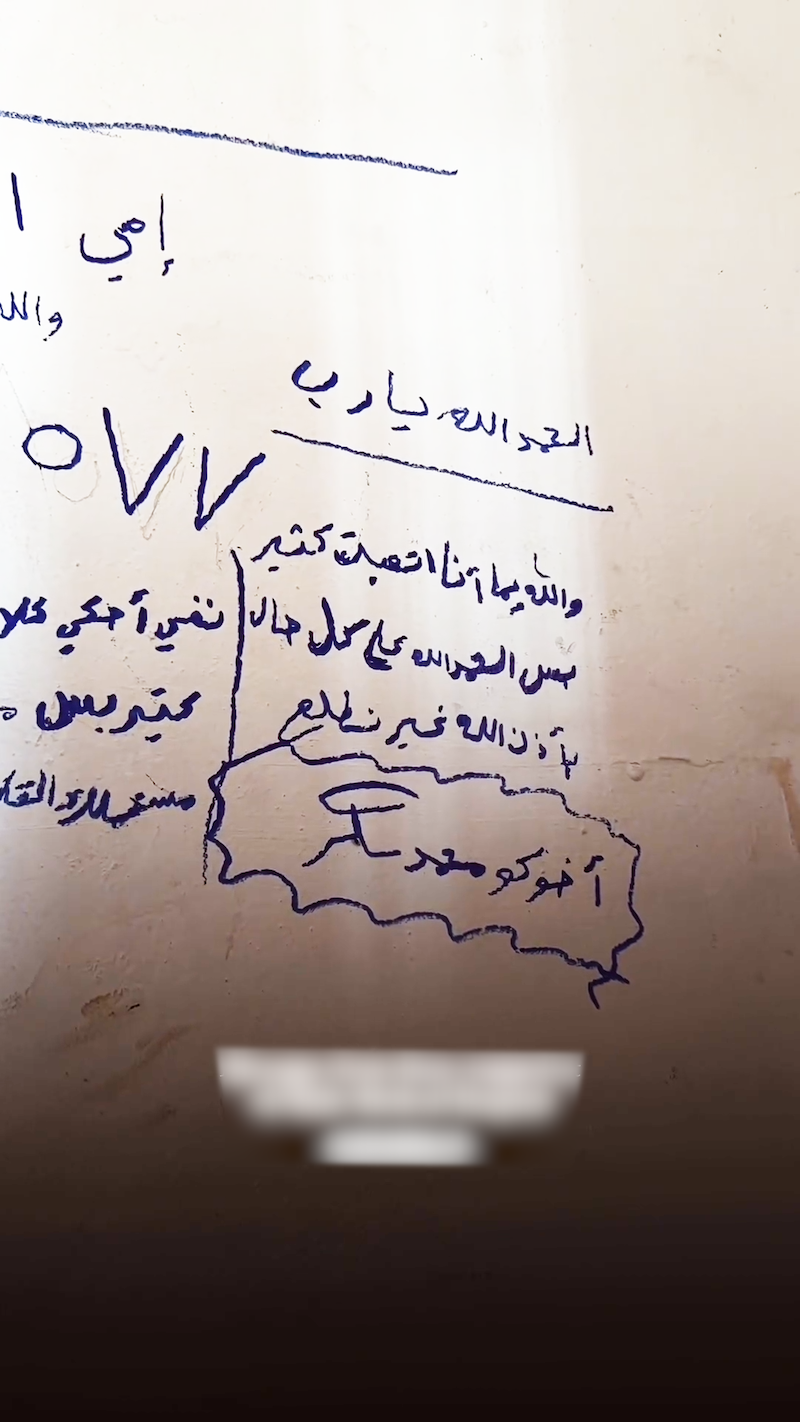 إمي ا
والله
الحمد الله يا رب
٥٧٧
والله يما أنا اتعبت كثير
بس الحمد الله على كل حال
بأذن الله غير نطلع
أخوكو محمد
نفسي أحكي كلا
كثير بس